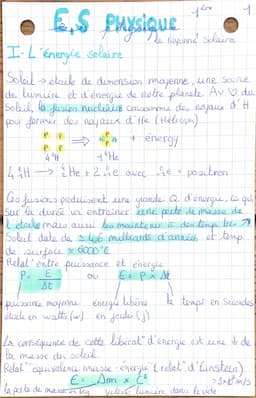 1ère 1
E.S PHYSIQUE
le rayonné solaire
I- L'énergie solaire
Soleil → étoile de dimension moyenne, une source
de lumière et d'énergie de notre planète. Au ♡ du
Soleil, la fusion nucléaire consomme des noyaux d'H
pour former des noyaux d'He (Hélium)
P P P P ⇒ + énergy
4 ¹H ⁴He
4 ¹₁H → ⁴₂He + 2 ⁰₁e avec ⁰₁e = positron
Ces fusions produisent une grande Q. d'énergie, ce qui
sur la durée va entraîner une perte de masse de
l'étoile mais aussi la maintenir à des temp.
Soleil date de ≈ 4,6 milliards d'années et temp
de surface ≈ 6000°C
Relat° entre puissance et énergie
P = E / Δt ou E = P × Δt
puissance moyenne énergie libérée le temps en secondes
étoile en watts (w) en joule (j)
La conséquence de cette libérat° d'énergie est une ↓ de
la masse du soleil.
Relat° équivalence masse-énergie (relat° d'Einstein)
E = Δm × C² = 3×10⁸ m/s
la perte de masse en kg lumière dans le vide